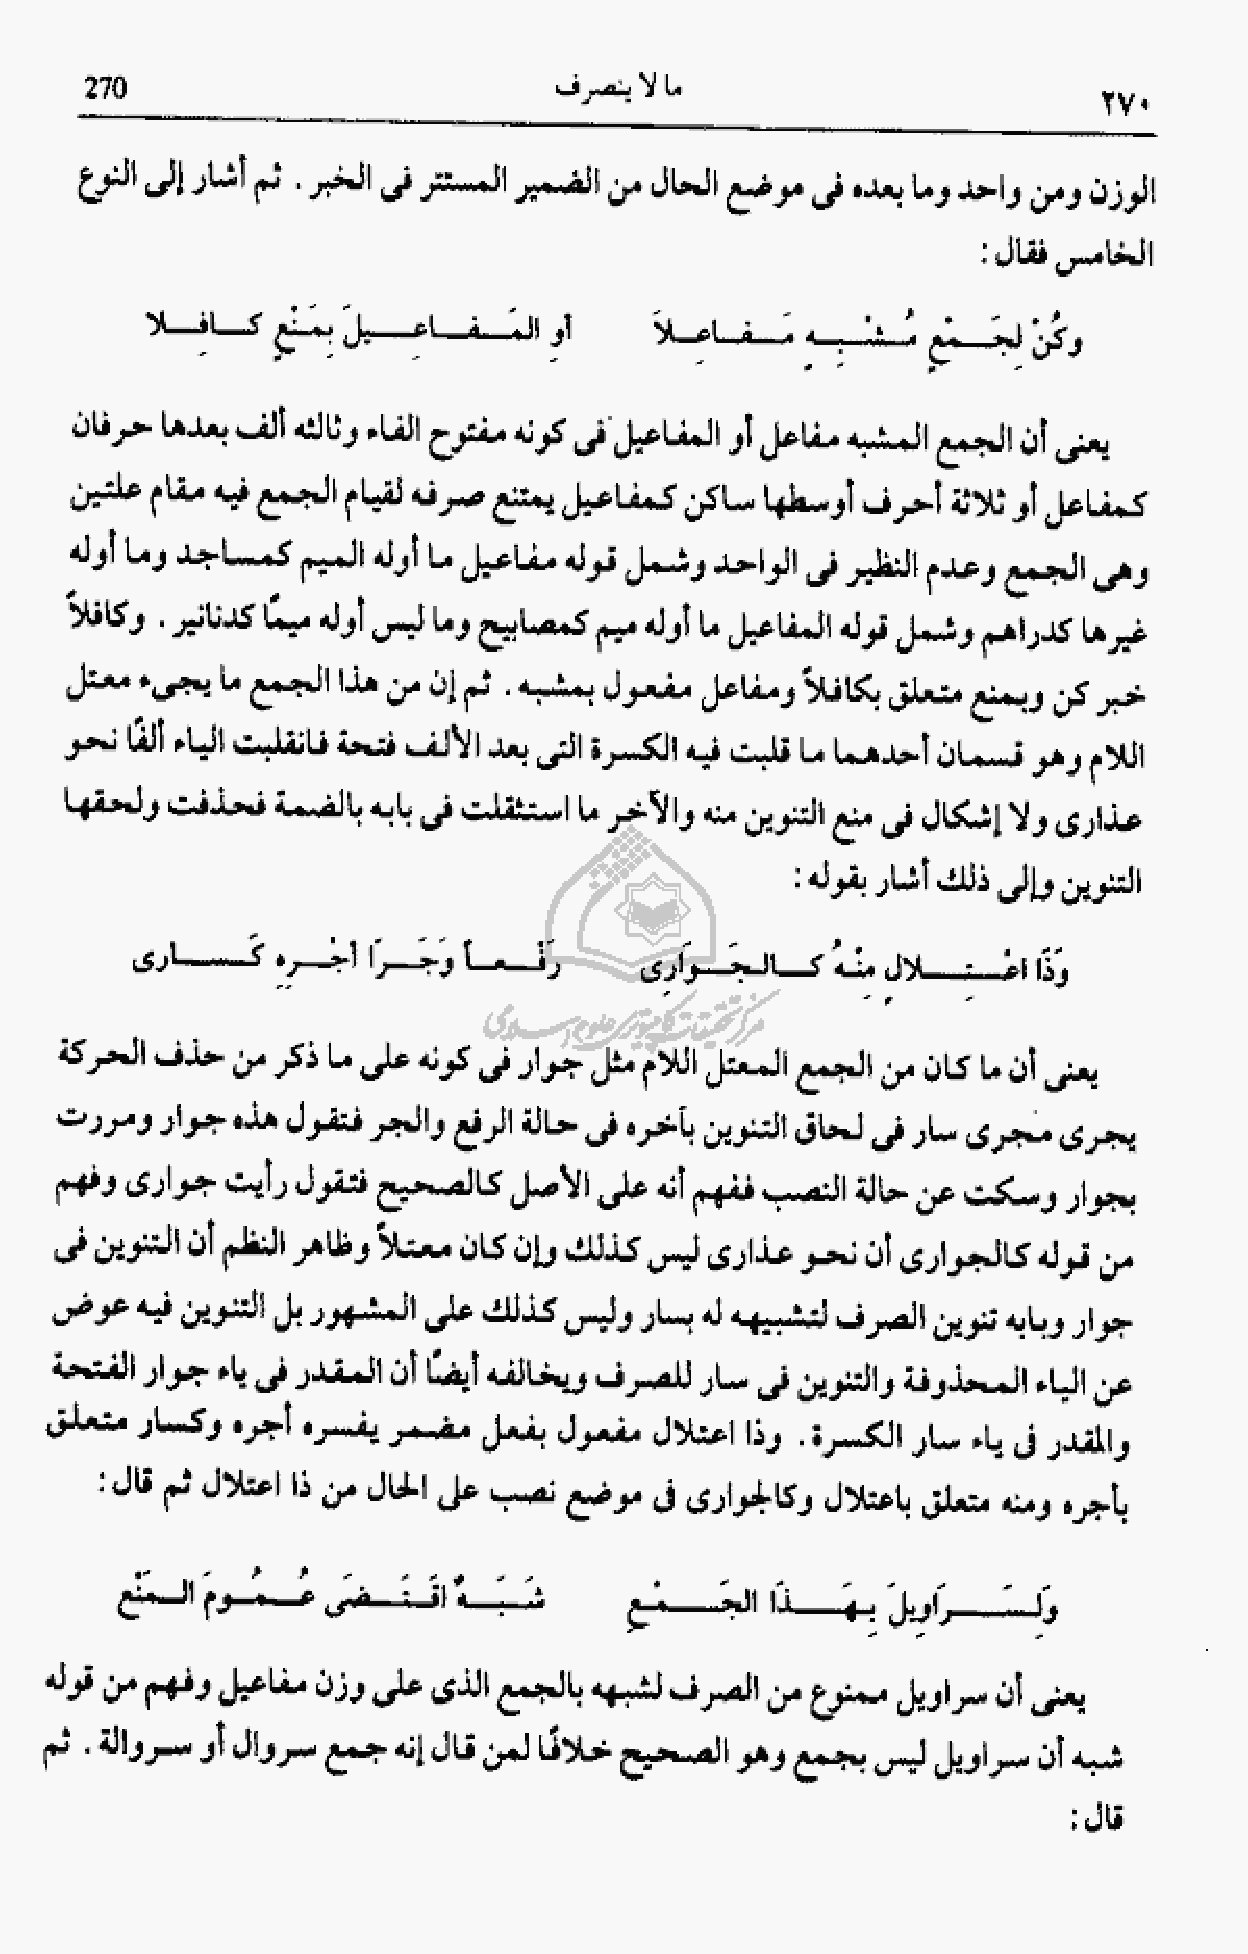 ٢٧٠ ما لا ينصرف 270
الوزن ومن واحد وما بعده فى موضع الحال من الضمير المستتر فى الخبر . ثم أشار إلى النوع
الخامس فقال :
وكُنْ لِجَمْعٍ مُشْبِهٍ مَفَاعِلاَ أوِ المَفَاعِيلَ بِمَنْعٍ كافِلا
يعنى أن الجمع المشبه مفاعل أو المفاعيل فى كونه مفتوح الفاء وثالثه ألف بعدها حرفان
كمفاعل أو ثلاثة أحرف أوسطها ساكن كمفاعيل يمتنع صرفه لقيام الجمع فيه مقام علتين
وهى الجمع وعدم النظير فى الواحد وشمل قوله مفاعيل ما أوله الميم كمساجد وما أوله
غيرها كدراهم وشمل قوله المفاعيل ما أوله ميم كمصابيح وما ليس أوله ميمًا كدنانير . وكافلاً
خبر كن وبمنع متعلق بكافلاً ومفاعل مفعول بمشبه . ثم إن من هذا الجمع ما يجىء معتل
اللام وهو قسمان أحدهما ما قلبت فيه الكسرة التى بعد الألف فتحة فانقلبت الياء ألفًا نحو
عذارى ولا إشكال فى منع التنوين منه والآخر ما استثقلت فى بابه بالضمة فحذفت ولحقها
التنوين وإلى ذلك أشار بقوله :
وَذَا اعْتِلالٍ مِنْهُ كالجَوَارِى رَفْعاً وَجَرَا أجْرِهِ كَسارى
يعنى أن ما كان من الجمع المعتل اللام مثل جوار فى كونه على ما ذكر من حذف الحركة
يجرى مجرى سار فى لحاق التنوين بآخره فى حالة الرفع والجر فتقول هذه جوار ومررت
بجوار وسكت عن حالة النصب ففهم أنه على الأصل كالصحيح فتقول رأيت جوارى وفهم
من قوله كالجوارى أن نحو عذارى ليس كذلك وإن كان معتلاً وظاهر النظم أن التنوين فى
جوار وبابه تنوين الصرف لتشبيهه له بسار وليس كذلك على المشهور بل التنوين فيه عوض
عن الياء المحذوفة والتنوين فى سار للصرف ويخالفه أيضًا أن المقدر فى ياء جوار الفتحة
والمقدر فى ياء سار الكسرة . وذا اعتلال مفعول بفعل مضمر يفسره أجره وكسار متعلق
بأجره ومنه متعلق باعتلال وكالجوارى فى موضع نصب على الحال من ذا اعتلال ثم قال :
وَلِسَرَاوِيلَ بِهَذَا الجَمْعِ شَبَهٌ اقَتَضَى عُمُومَ المَنْع
يعنى أن سراويل ممنوع من الصرف لشبهه بالجمع الذى على وزن مفاعيل وفهم من قوله
شبه أن سراويل ليس بجمع وهو الصحيح خلافًا لمن قال إنه جمع سروال أو سروالة . ثم
قال :
مركز تحقيقات كامپيوترى علوم اسلامى